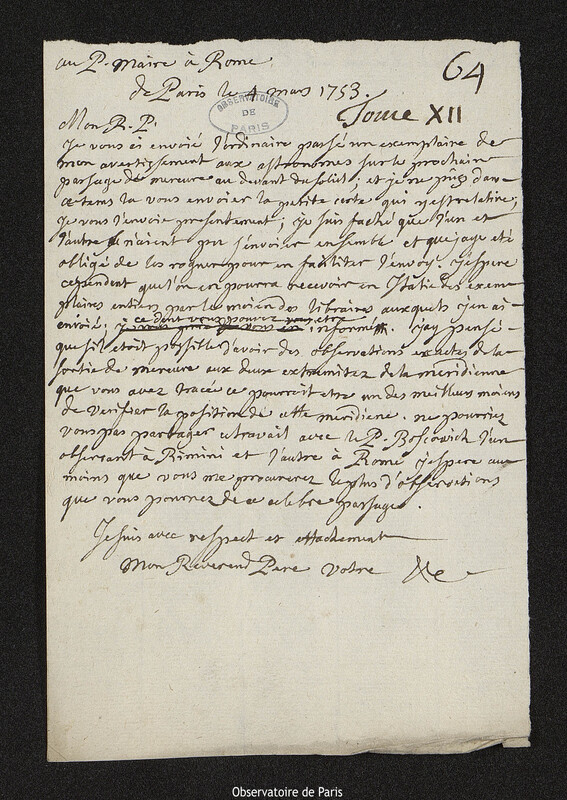 au P. Maire à Rome.
64
de Paris le 4 mars 1753.
OBSERVATOIRE
DE
PARIS
Tome XII
Mon R. P.
Je vous ai envoié l'ordinaire passé un exemplaire de
mon avertissement aux astronomes sur le prochain
passage de mercure au devant du soleil; et je ne pus dans
ce tems la vous envoier la petite carte qui y est relative;
Je vous l'envoie presentement; je suis faché que l'un et
l'autre n'aient pu s'envoier ensemble et que j'aye eté
obligé de les rogner pour en faciliter l'envoy. J'espere
cependant que l'on en pourra recevoir en Italie des exem
plaires entiers par le moien des libraires auxquels j'en ai
envoié; ce dont vous pouvez vous etre
informé. J'ay pensé
que s'il etoit possible d'avoir des observations exactes de la
sortie de mercure aux deux extremitez de la meridienne
que vous avez tracée ce pourroit etre un des meilleurs moiens
de verifier la position de cette meridiene. ne pourriez
vous pas partager ce travail avec le P. Boscowich l'un
observant à Rimini et l'autre à Rome J'espere au
moins que vous me procurerez le plus d'observations
que vous pourrez de ce celebre passage.
Je suis avec respect et attachement
Mon Reverend Pere votre &c
Observatoire de Paris